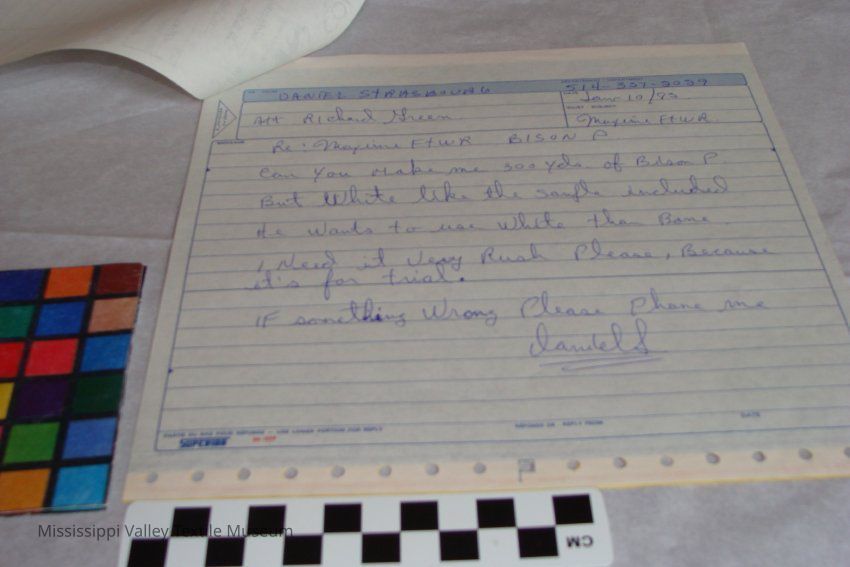 DANIEL STRASBOURG
514-337-2029
Jan 10/92
Att Richard Green
Maxime Ftwr.
Re: Maxime Ftwr BISON P
Can you make me 300 yds of Bison P.
But White like the sample included
He wants to use White than Bone
I Need it Very Rush Please, Because
it's for trial.
IF something Wrong Please Phone me
Daniel S
SUPERIOR
DATE
CM
Mississippi Valley Textile Museum